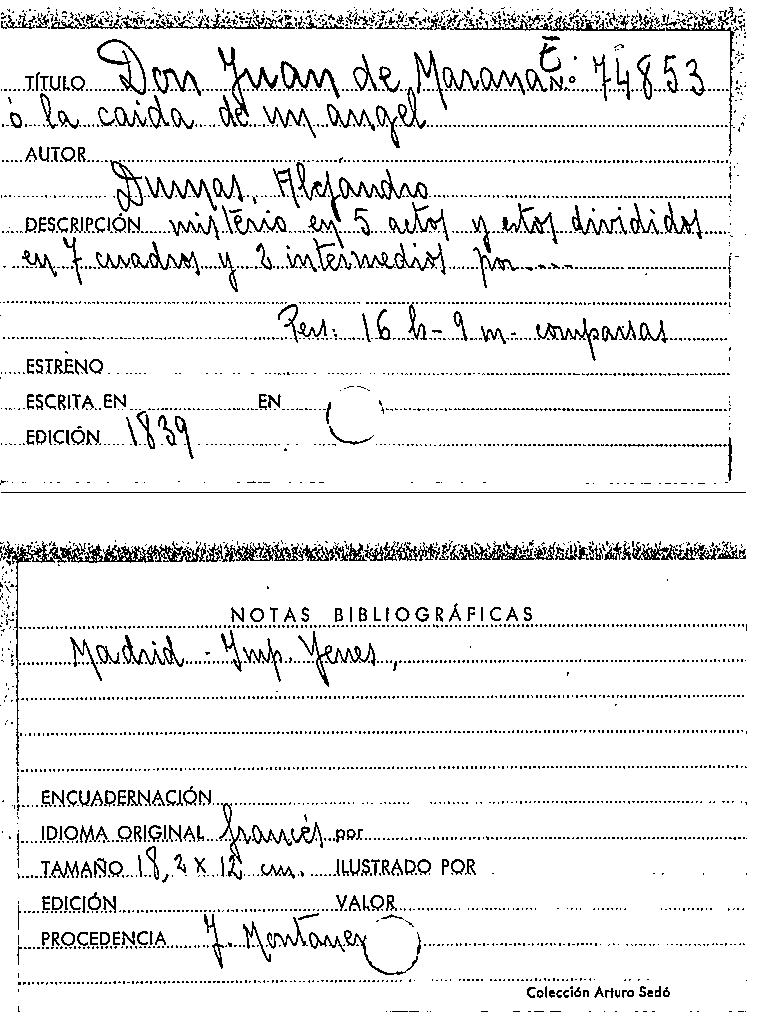 TÍTULO Don Juan de Marana E N.: 74853
ó la caida de un angel
AUTOR
Dumas, Alejandro
DESCRIPCIÓN misterio en 5 actos y estos divididos
en 7 cuadros y 2 intermedios por....
Pers: 16 h - 9 m - comparsas
ESTRENO
ESCRITA EN EN
EDICIÓN 1839
NOTAS BIBLIOGRÁFICAS
Madrid - Imp. Yenes,
ENCUADERNACIÓN
IDIOMA ORIGINAL francés por
TAMAÑO 18,2 x 12 cm. ILUSTRADO POR
EDICIÓN VALOR
PROCEDENCIA J. Montaner
Colección Arturo Sedó